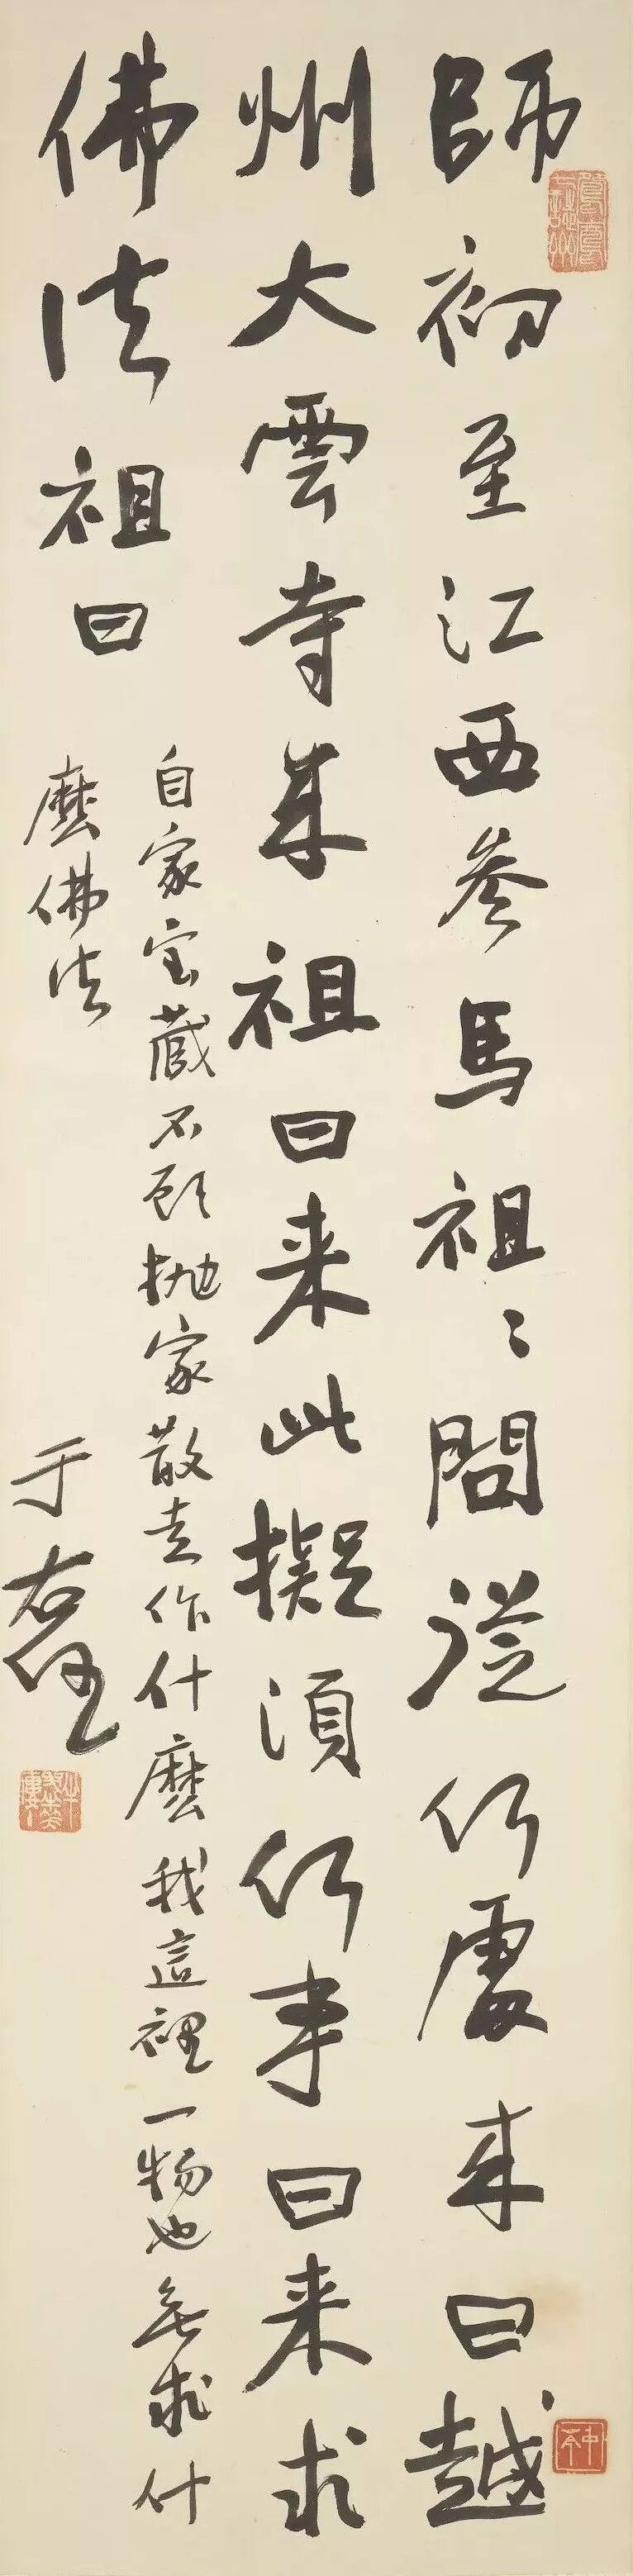 師初至江西參馬祖〻問從何處来曰越
州大雲寺来祖曰来此擬須何事曰来求
佛法祖曰
自家宝藏不顧抛家散走作什麼我這裡一物也無求什
麼佛法
于右任